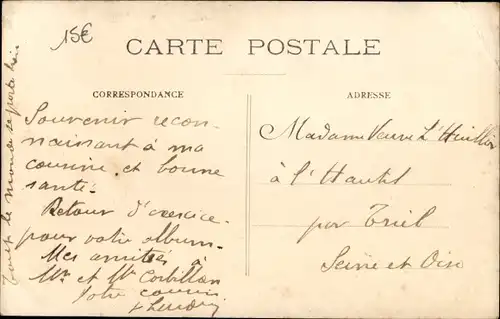 15€
CARTE POSTALE
CORRESPONDANCE
ADRESSE
Souvenir recon-
naissant à ma
cousine et bonne
santé.
Retour d'exercice
pour votre album.
Mes amitiés à
Mr et Me
Votre cousin
Tout le monde se porte bien
Madame Veuve L'Huillier
à l'Hautil
par Triel
Seine et Oise